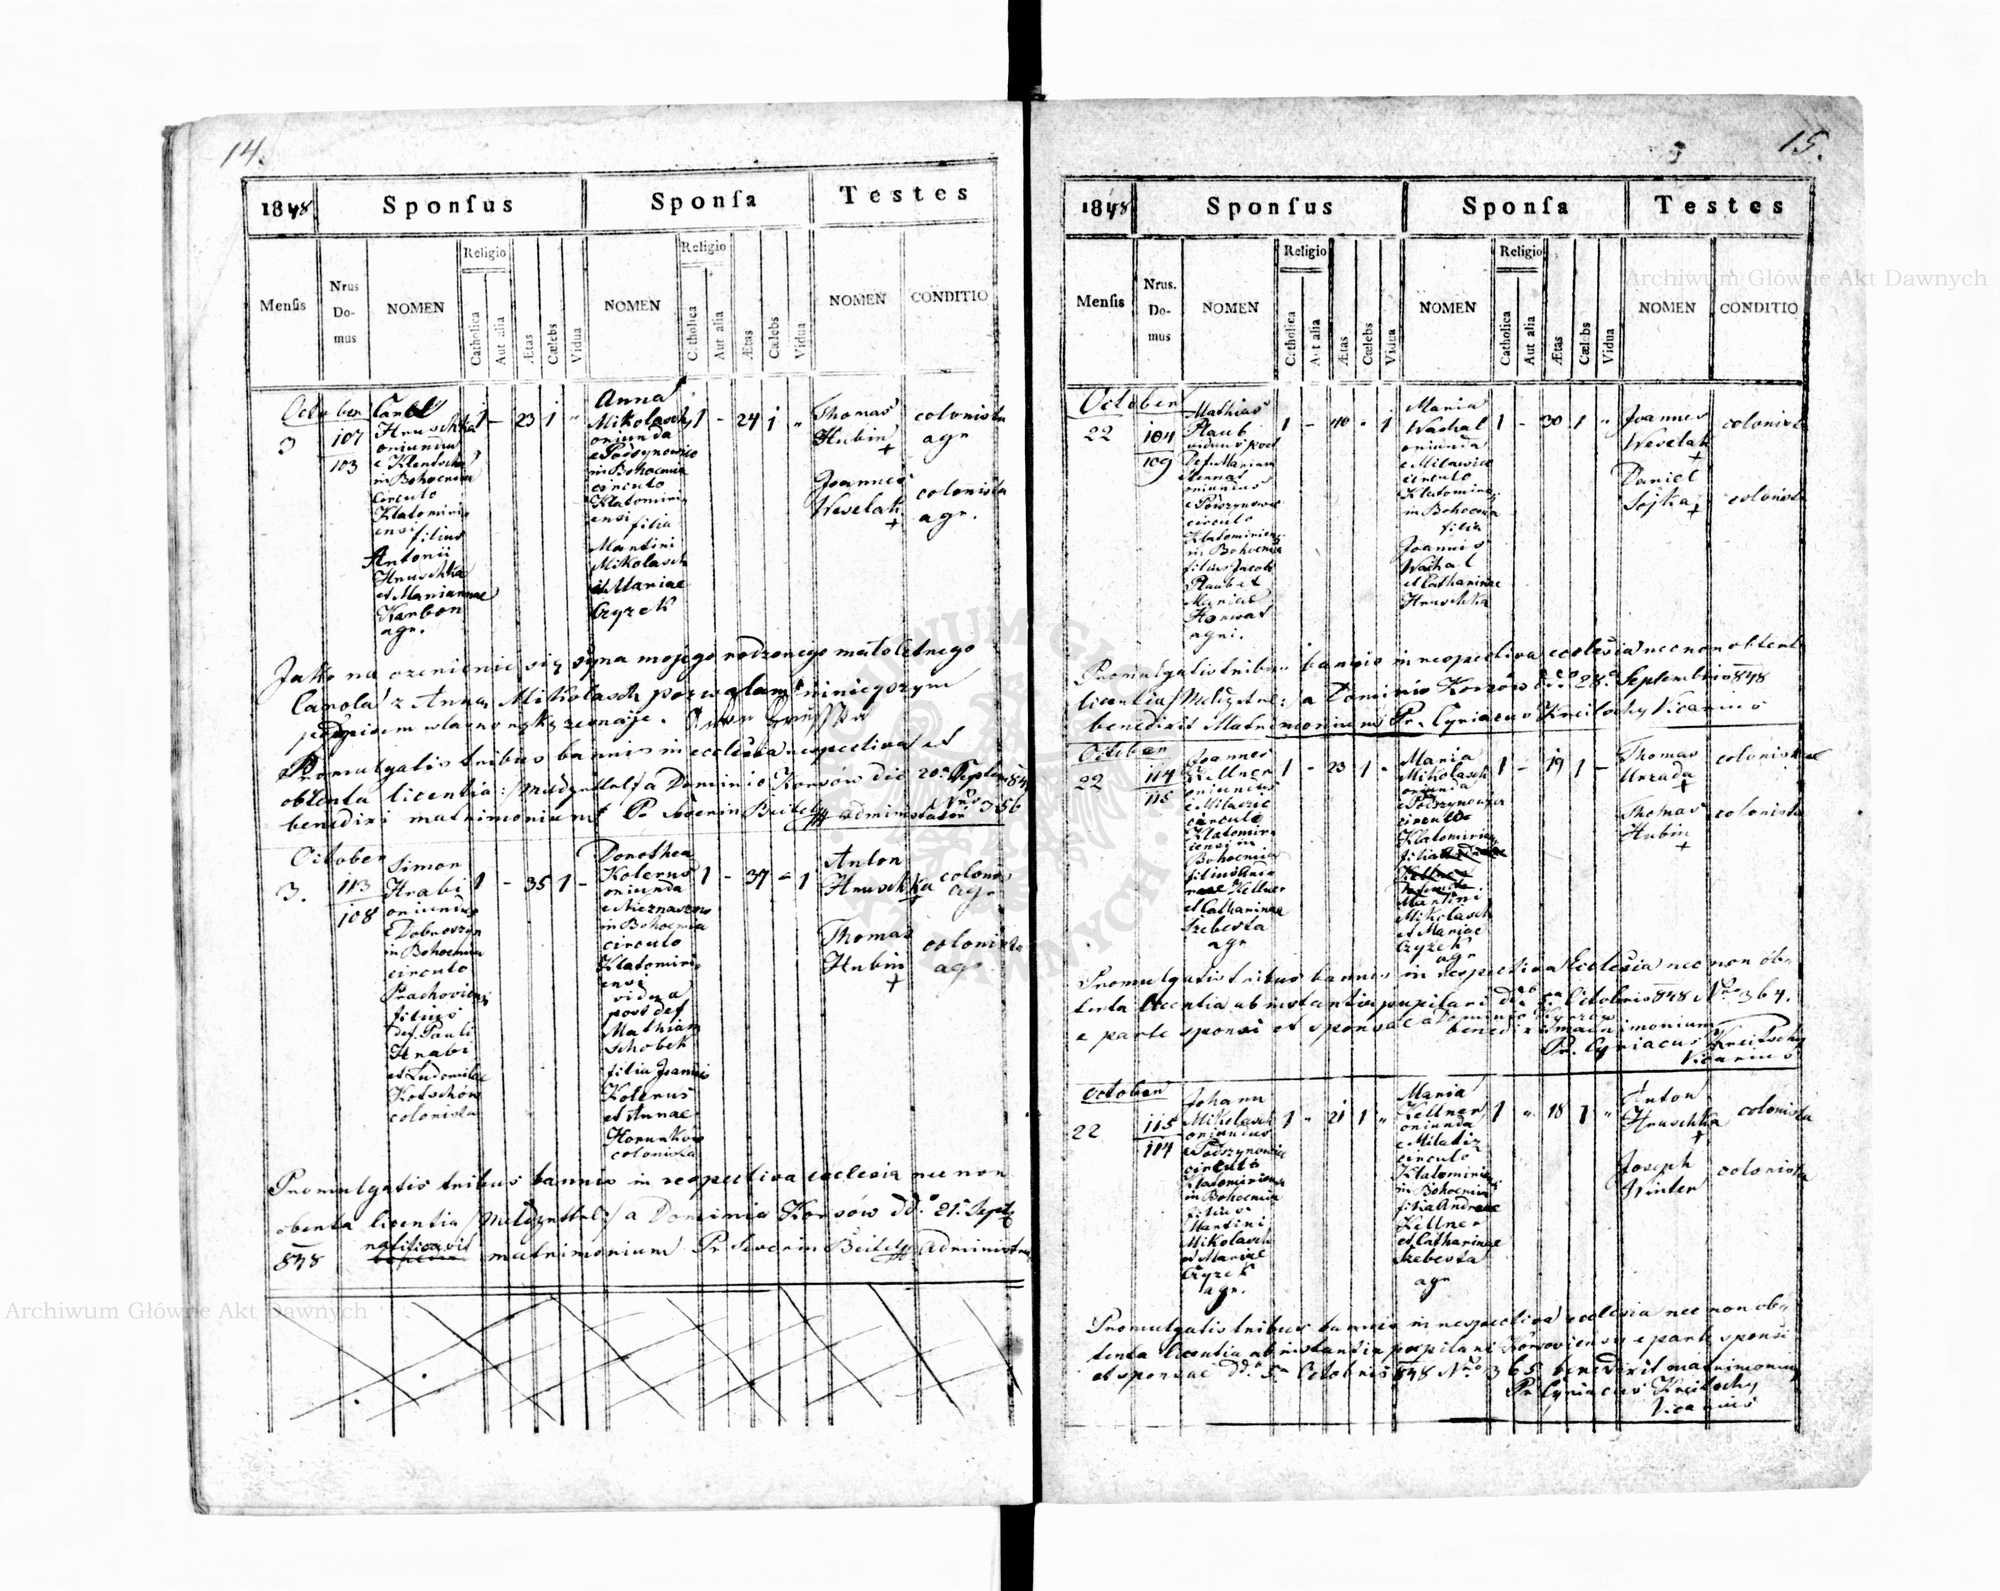 14.
1848
Sponſus
Sponſa
Testes
Menſis
Nrus
Do-
mus
NOMEN
Religio
Catholica
Aut alia
Ætas
Cælebs
Vidua
NOMEN
Religio
Catholica
Aut alia
Ætas
Cælebs
Vidua
NOMEN
CONDITIO
October
3
107
103
Carol
Hruschka
oriundus
e Klentsch
in Bohoemia
circulo
Klatomiri-
ensi filius
Antonii
Hruschka
et Mariannae
Karbon
agr.
1 - 23 1 "
Anna
Mikolasch
oriunda
e Podzynowic
in Bohoemia
circulo
Klatomiri-
ensi filia
Martini
Mikolasch
et Mariae
Czyzek
1 - 24 1 "
Thomas
Hubin
+
colonista
agr
Joannes
Weselak
+
colonista
agr.
Jako na ozenienie się syna mojego rodzonego małoletnego
Carola z Anną Mikolasch pozwalam niniejszym
podpisem własno ręką zeznaję.
Promulgatis tribus bannis in ecclesia respectiva et
obtenta licentia /:Meldzettel:/ a Dominio Korsów die 20a Septem 848
Nro 356
benedixi matrimonium P. Severin Beitel administrator
October
3.
113
108
Simon
Hrabi
oriundus
e Dobroszyn
in Bohoemia
circulo
Prachoviensi
filius
def. Pauli
Hrabi
et Ludomilae
Kotschów
colonista
1 - 35 1 -
Dorothea
Kolerus
oriunda
e Nieznaszow
in Bohoemia
circulo
Klatomiri-
ensi
vidua
post def
Mathiam
Schobek
filia Joannis
Kolerus
et Annae
Horunków
colonista
1 - 37 - 1
Anton
Hruschka
+
colonis
agr
Thomas
Hubin
+
colonista
agr
Promulgatis tribus bannis in respectiva ecclesia nec non
obenta licentia /:Meldzettel:/ a Dominio Korsów dd. 21. Sept
848 ratificavit matrimonium Pr Severin Beitel Administra
15.
1848
Sponſus
Sponſa
Testes
Menſis
Nrus.
Do-
mus
NOMEN
Religio
Catholica
Aut alia
Ætas
Cælebs
Vidua
NOMEN
Religio
Catholica
Aut alia
Ætas
Cælebs
Vidua
NOMEN
CONDITIO
October
22
104
109
Mathias
Plaub
viduus post
Def. Mariam
oriundus
e Podzynowic
circulo
Klatomirien:
in Bohoemia
filius Jacob
Plaub et
Mariae
Horwat
agri.
1 - 40 - 1
Maria
Wachal
oriunda
e Milawicz
circulo
Klatomirie:
in Bohoemia
filia
Joannis
Wachal
et Catharinae
Hruschka
1 - 30 1 "
Joannes
Weselak
+
colonista
Daniel
Sojka
+
colonista
Promulgatis tribus bannis in respectiva ecclesia nec non obtent
licentia /:Meldzettel:/ a Dominio Korsów dd. 28a Septembris 848
benedixit Matrimonium Pr. Cyriacus Kreitschy Vicarius
October
22
114
115
Joannes
Kellner
oriundus
e Milaczic
circulo
Klatomir-
iensi in
Bohoemia
filius Andr
reae Kellner
et Catharinae
Szebesta
agr
1 - 23 1 -
Maria
Mikolasch
oriunda
e Podzynowic
circulo
Klatomirien
filia
Martini
Mikolasch
et Mariae
Czyzek
agr
1 - 19 1 -
Thomas
Urzada
+
colonistae
Thomas
Hubin
+
colonista
Promulgatis tribus bannis in respectiva Ecclesia nec non ob-
tenta licentia ab instantia pupilari dd. 5a Octobris 848 Nro 364.
e parte sponsi et sponsae a Dominio Korsow
benedixi matrimonium
Pr. Cyriacus Kreitschy
Vicarius
October
22
115
114
Johann
Mikolasch
oriundus
e Podzynowic
circulo
Klatomiriensi
in Bohoemia
filius
Martini
Mikolasch
et Mariae
Czyzek
agr.
1 - 21 1 "
Maria
Kellner
oriunda
e Milaticz
circulo
Klatomirien
in Bohoemia
filia Andreae
Kellner
et Catharinae
Szebesta
agr
1 " 18 1 "
Anton
Hruschka
+
colonista
Joseph
Winter
colonista
Promulgatis tribus bannis in respectiva ecclesia nec non ob-
tenta licentia ab instantia pupilari Korsoviensi e parte sponsi
et sponsae dd. 5a Octobris 848 Nro 365 benedixit matrimonium
Pr Cyriacus Kreitschy
Vicarius
Archiwum Główne Akt Dawnych
Archiwum Główne Akt Dawnych